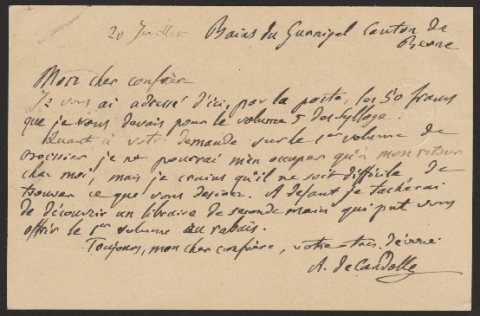 20 Juillet Bains du Gurnigel Canton de
Berne
Mon cher confrère
Je vous ai adressé d'ici, par la poste, les 50 francs
que je vous devais pour le volume 5 du Sylloge.
Quant à votre demande sur le 1er volume de
Boissier je ne pourrai m'en occuper qu'à mon retour
chez moi, mais je crains qu'il ne soit difficile de
trouver ce que vous desirez. A défaut je tacherai
de découvrir un libraire de seconde main qui put vous
offrir le 1er volume au rabais.
Toujours, mon cher confrère, votre très dévoué
A. de Candolle